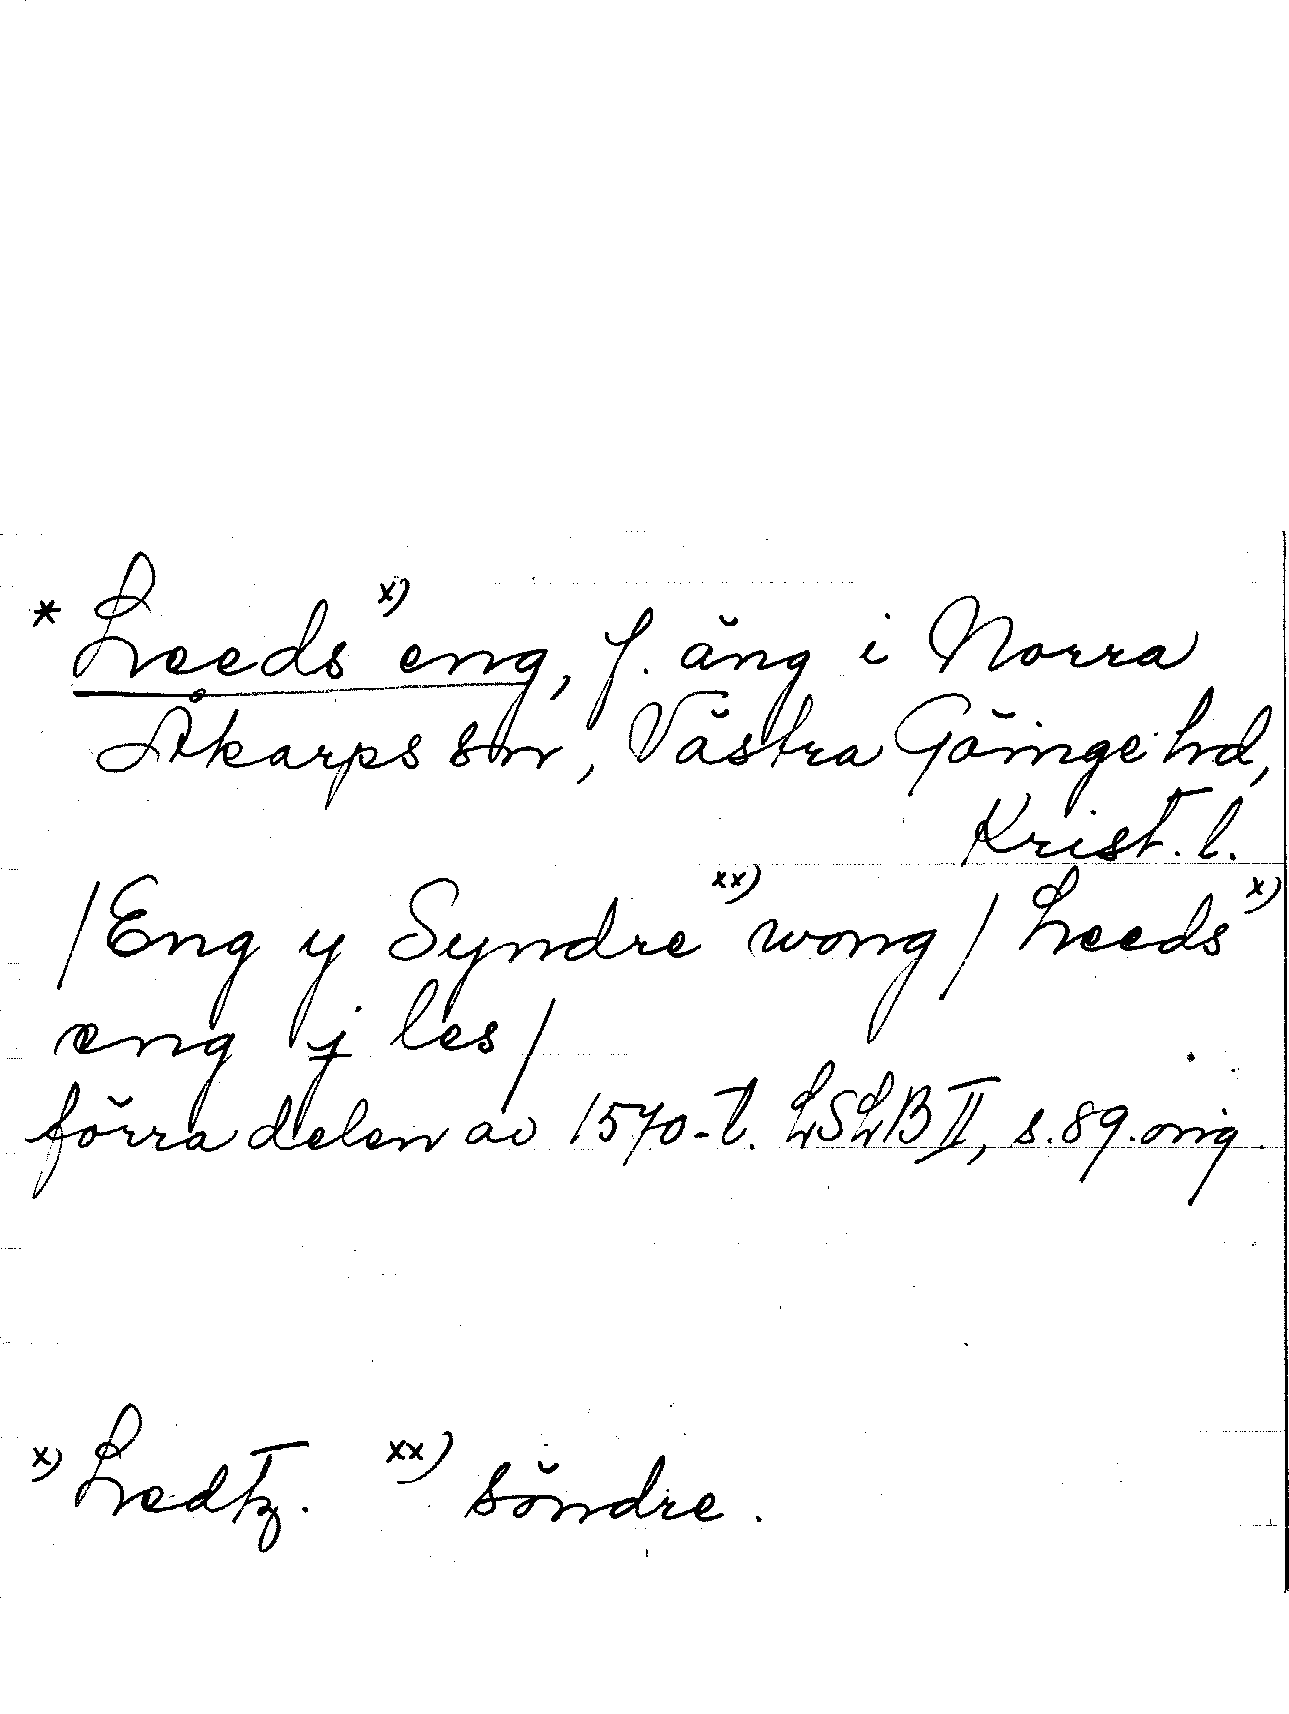 * Leeds x) eng, f. äng i Norra
Åkarps sn, Västra Göinge hd,
Krist. l.
/Eng y Syndre xx) wong / Leeds x)
eng j les/
förra delen av 1570-t. LSLB II, s. 89. orig.
x) Ledtz. xx) söndre.